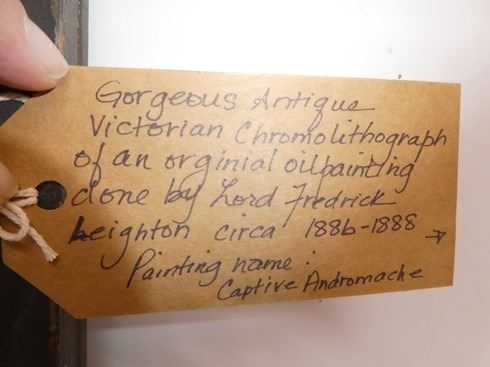 Gorgeous Antique
Victorian Chromolithograph
of an orginial oilpainting
done by Lord Fredrick
Leighton circa 1886-1888 →
Painting name :
Captive Andromache